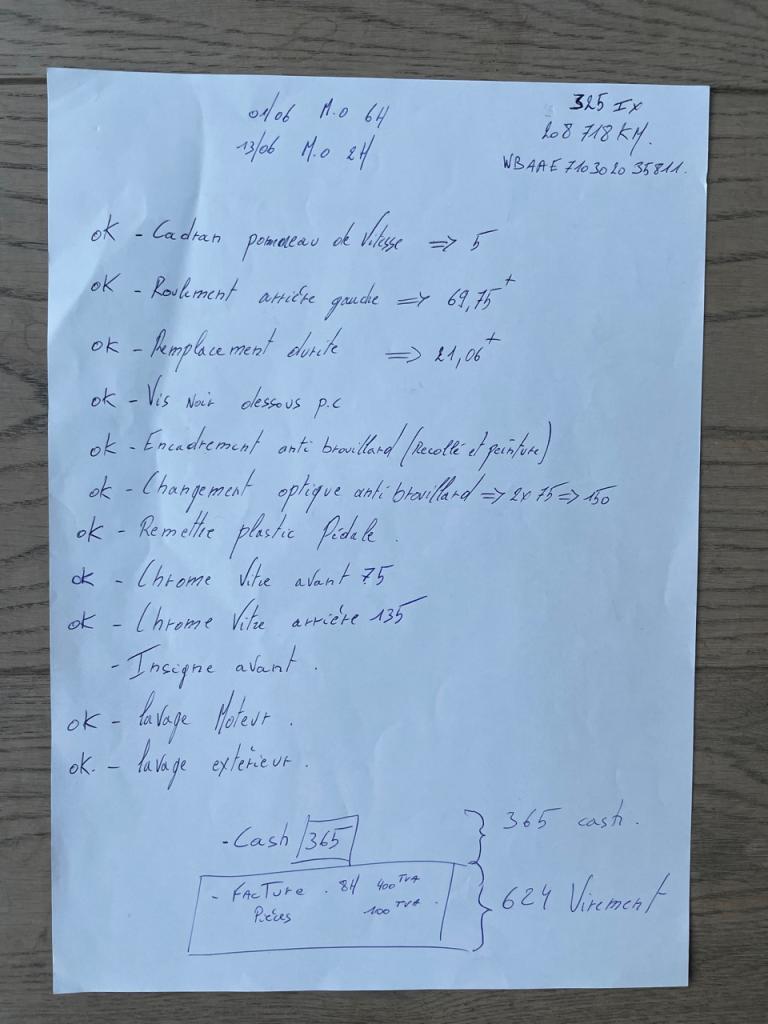 01/06 M.O 6H
13/06 M.O 2H
325 IX
208 718 KM.
WBAAE710302035811.
OK - Cadran pommeau de Vitesse => 5
OK - Roulement arrière gauche => 69,75+
OK - Remplacement durite => 21,06+
OK - Vis Noir dessous p.c
OK - Encadrement anti brouillard (Recollé et peinture)
OK - Changement optique anti brouillard => 2x75 => 150
OK - Remettre plastic Pédale.
OK - Chrome Vitre avant 75
OK - Chrome Vitre arrière 135
- Insigne avant.
OK - lavage Moteur.
OK. - lavage extérieur.
- Cash 365
} 365 cash.
- FACTURE . 8H 400 TVA
Pièces 100 TVA.
} 624 Virement